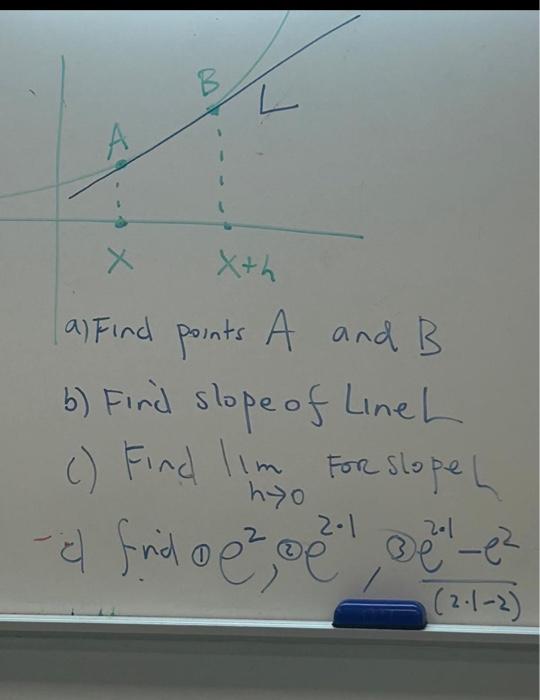 B
L
A
X X+h
a) Find points A and B
b) Find slope of Line L
c) Find lim For slope L
h→0
d) find ① e², ② e^2.1, ③ e^2.1 - e²
(2.1-2)